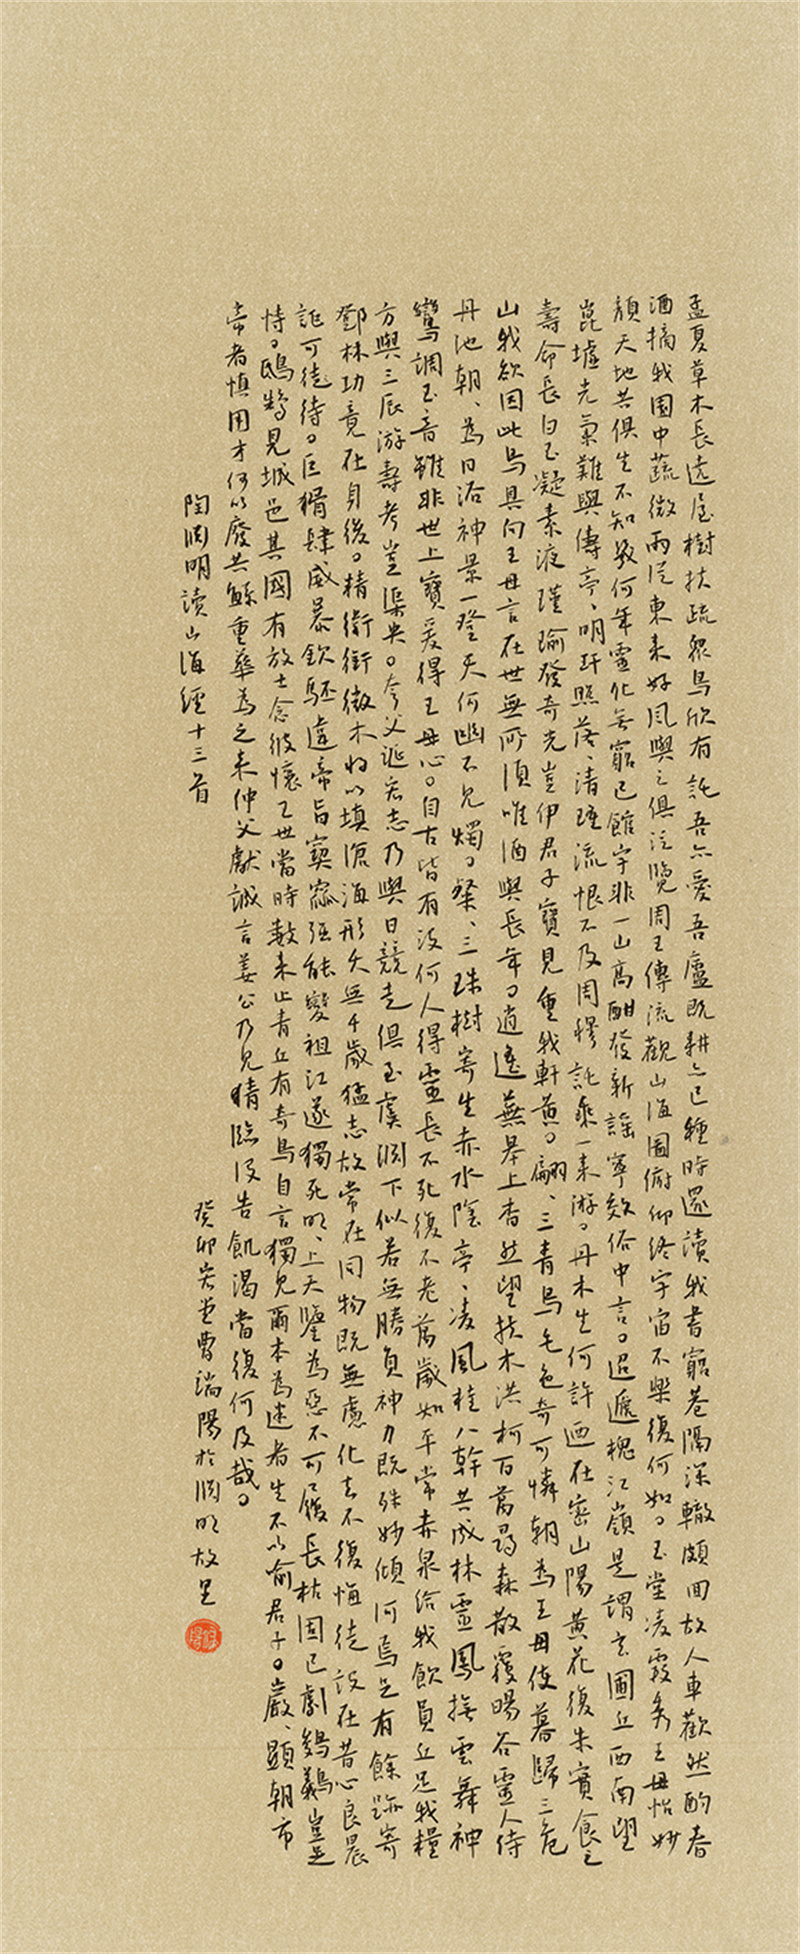 孟夏草木長遶屋樹扶疏眾鳥欣有託吾亦愛吾廬既耕亦已種時還讀我書窮巷隔深轍頗回故人車歡然酌春
酒摘我園中蔬微雨從東來好風與之俱泛覽周王傳流觀山海圖俯仰終宇宙不樂復何如。玉堂凌霞秀王母怡妙
顏天地共俱生不知幾何年靈化無窮已館宇非一山高酣發新謠寧效俗中言。迢遞槐江嶺是謂玄圃丘西南望
崑墟光氣難與儔亭、明玕照落、清瑤流恨不及周穆託乘一來游。丹木生何許迺在密山陽黃花復朱實食之
壽命長白玉凝素液瑾瑜發奇光豈伊君子寶見重我軒黃。翩、三青鳥毛色奇可憐朝為王母使暮歸三危
山我欲因此鳥具向王母言在世無所須唯酒與長年。逍遙蕪皋上杳然望扶木洪柯百萬尋森散覆暘谷靈人侍
丹池朝、為日浴神景一登天何幽不見燭。粲、三珠樹寄生赤水陰亭、凌風桂八幹共成林靈鳳撫雲舞神
鸞調玉音雖非世上寶爰得王母心。自古皆有沒何人得靈長不死復不老萬歲如平常赤泉給我飲員丘足我糧
方與三辰游壽考豈渠央。夸父誕宏志乃與日競走俱至虞淵下似若無勝負神力既殊妙傾河焉足有餘跡寄
鄧林功竟在身後。精衛銜微木將以填滄海形夭無千歲猛志故常在同物既無慮化去不復悔徒設在昔心良晨
詎可徒待。巨猾肆威暴欽駓違帝旨窫窳強能變祖江遂獨死明、上天鑒為惡不可履長枯固已劇鵕鶚豈足
恃。鴟鵂見城邑其國有放士念彼懷王世當時數來止青丘有奇鳥自言獨見爾本為迷者生不以喻君子。巖、顯朝市
帝者慎用才何以廢共鯀重華為之來仲父獻誠言姜公乃見猜臨沒告飢渴當復何及哉。
陶淵明讀山海經十三首
癸卯岩堂曹端陽於淵明故里